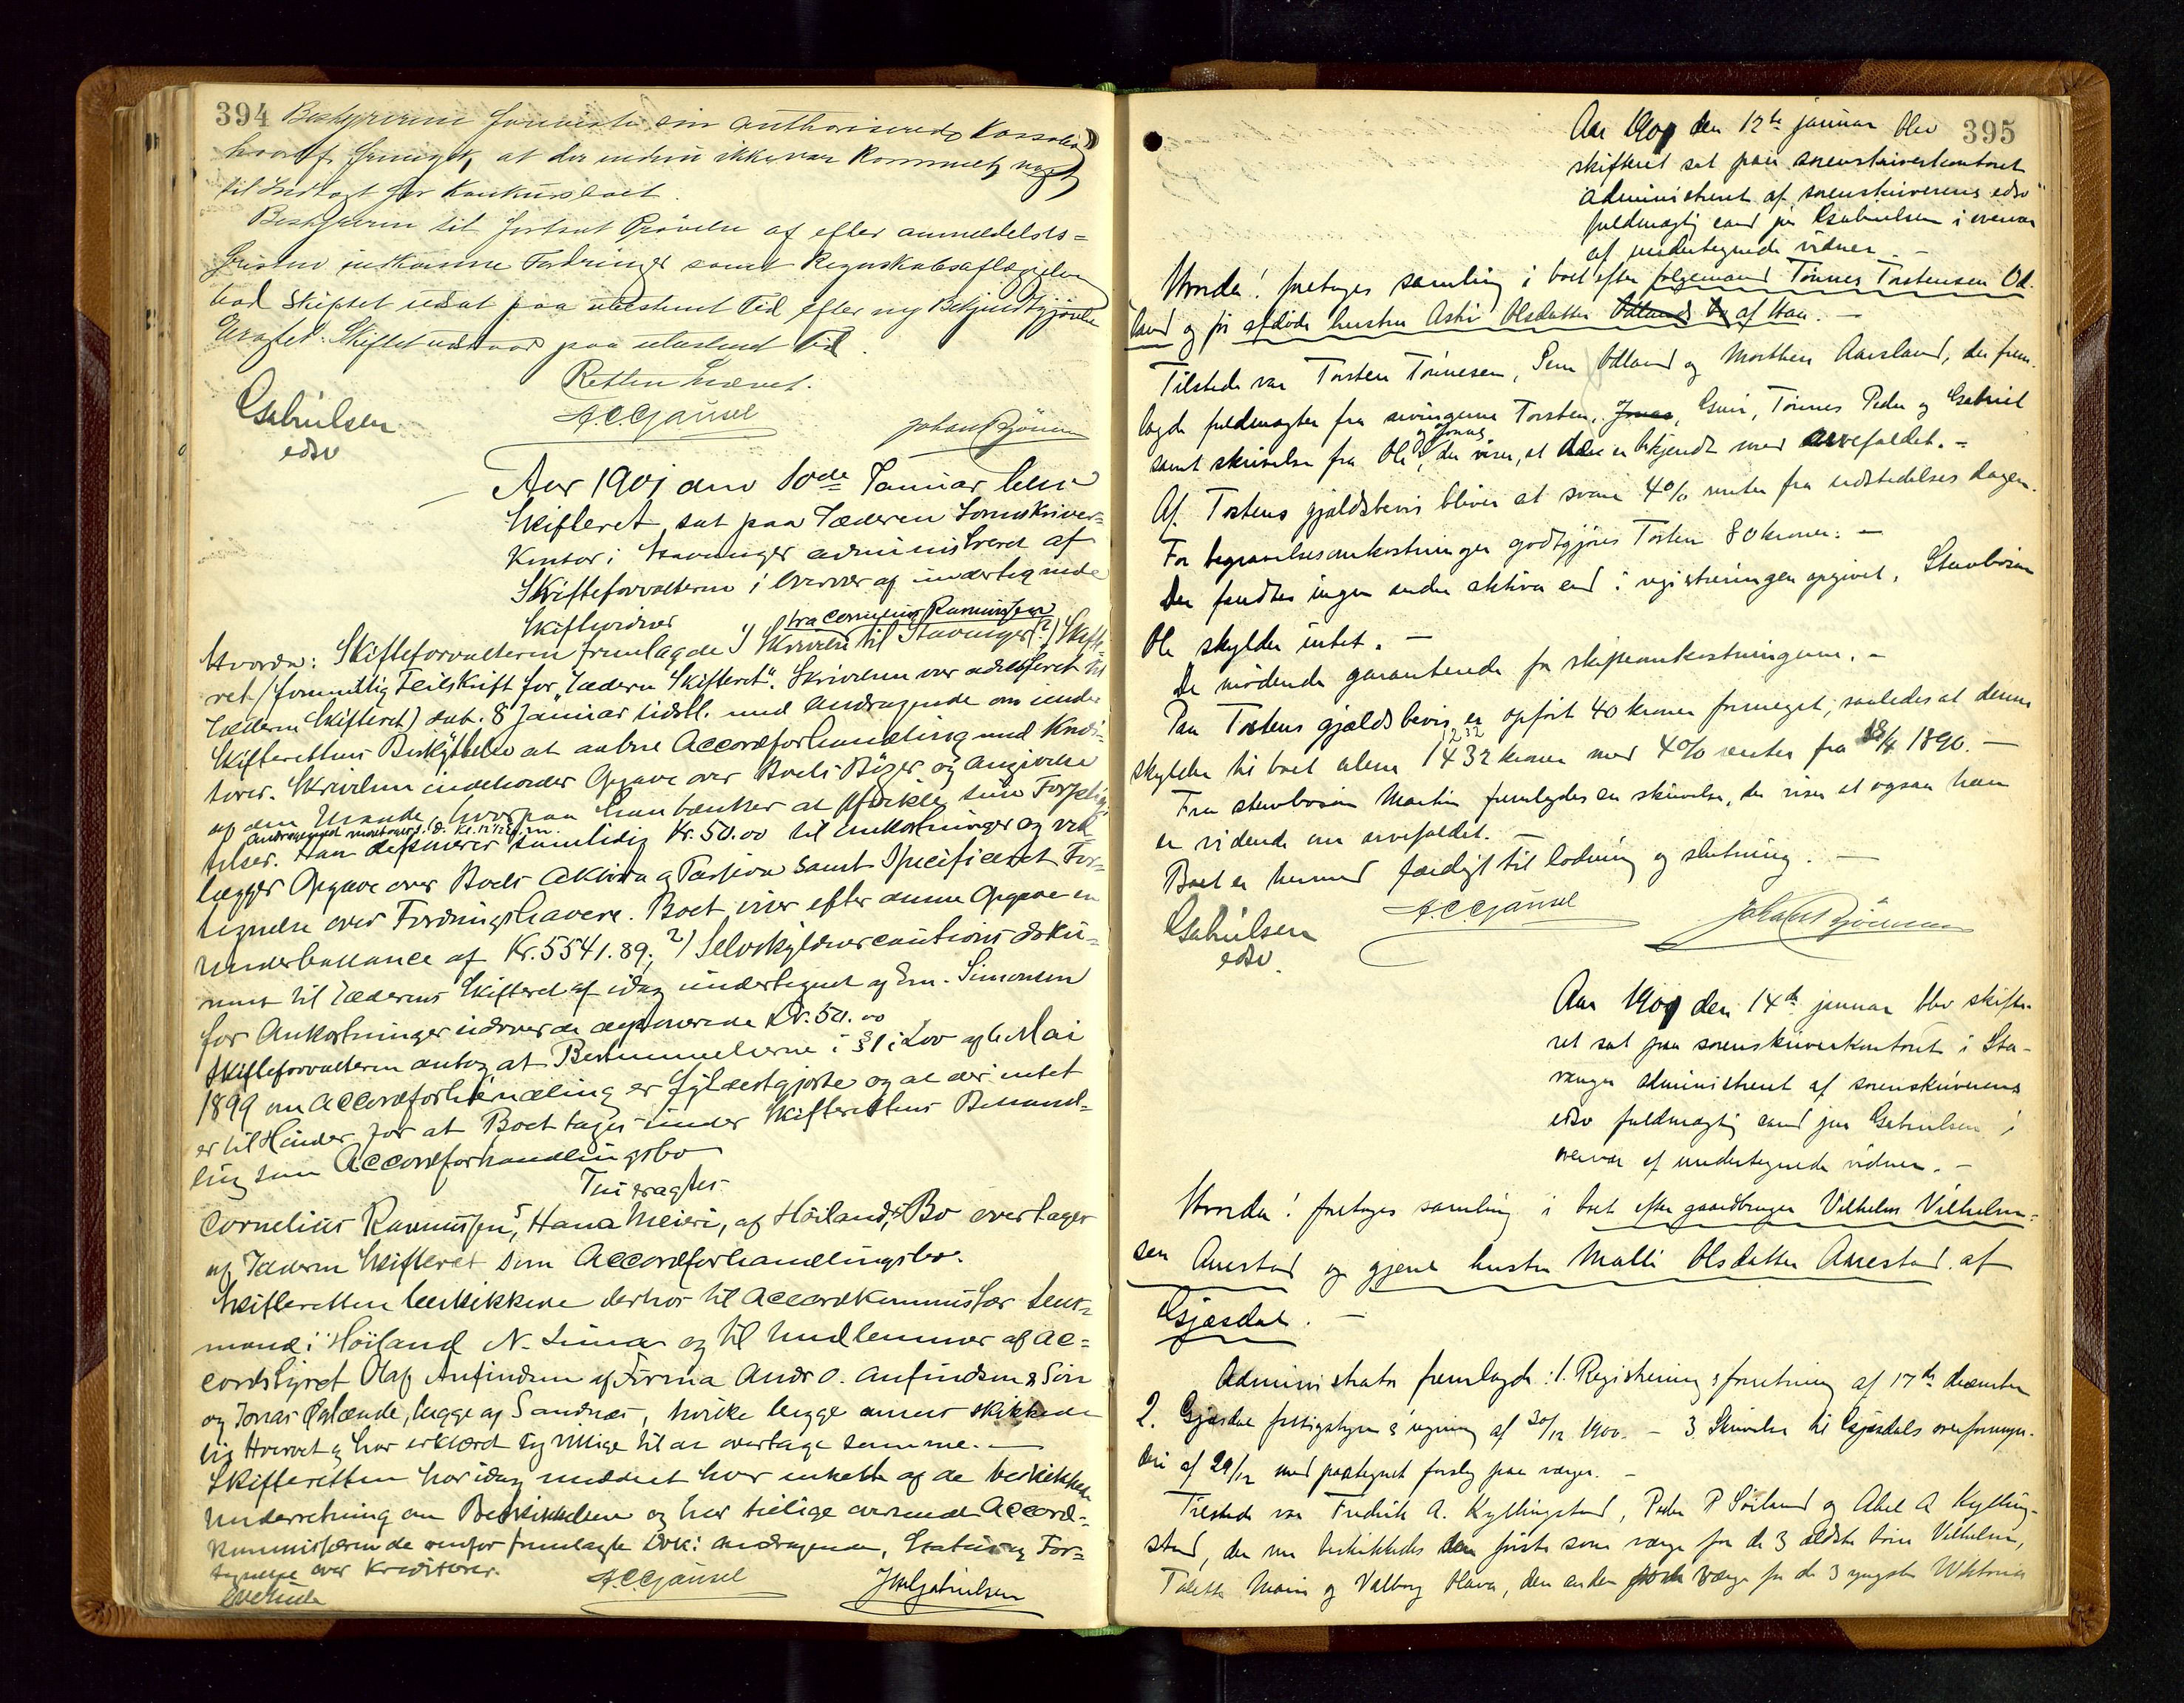 394
Bestyreren foreviste sin authoriserede Kassabog
hvoraf fremgik, at der endnu ikke var kommet noget
til Indtægt for Konkursboet.
Bestyreren til fortsat Prøvelse af efter anmeldelses-
fristen indkomne Fordringer samt Regnskabsaflæggelse
bad Skiftet udsat paa ubestemt Tid efter ny Bekjendtgjørelse
Eragtet: Skiftet udsættes paa ubestemt Tid.
Retten hævet.
Gabrielsen
edsv
A.C. Gjausel
Johan Bjønnes
Aar 1901 den 10de Januar blev
Skifteret sat paa Jæderen Sorenskriver-
Kontor i Stavanger administreret af
Skifteforvalteren i Overvær af undertegnede
Skiftevidner
fra Cornelius Rasmussen
Hvorda: Skifteforvalteren fremlagde 1) Skrivelse til Stavanger (?) Skifte-
ret (formentlig Feilskrift for "Jæderen Skifteret". Skrivelsen var adresseret til
Jæderen Skifteret) dat. 8 Januar sidstl. med Andragende om under
Skifterettens Beskyttelse at aabne Accordforhandling med Kredi-
torer. Skrivelsen indeholder Opgave over Boets Bøger og Angivelse
af den Maade, hvorpaa han tænker at opfylde sine Forplig-
Andragendet modtoges d. D. Kl. 12 1/2 f.m.
telser. Han deponerer samtidig Kr. 50.00 til Omkostninger og ved-
lægger Opgave over Boets Aktiva og Passiva samt specificeret For-
tegnelse over Fordringshavere. Boet viser efter denne Opgave en
Underballance af Kr. 5541.89; 2) Selvskyldnercautions doku-
ment til Jæderens Skifteret af idag undertegnet af Em. Simonsen
for Omkostninger udover de deponerede Kr. 50.00
Skifteforvalteren antog at Bestemmelserne i § 1 i Lov af 6 Mai
1899 om Accordforhandling er fyldestgjorte og at der intet
er til Hinder for at Boet tages under Skifterettens Behand-
ling som Accordforhandlingsbo
Thi eragtes
Cornelius Rasmussens, Hana Meieri, af Høilands, Bo overtages
af Jæderen Skifteret som Accordforhandlingsbo.
Skifteretten beskikkede derhos til Accordkommissær Lens-
mand i Høiland N. Lima og til Medlemmer af Ac-
cordstyret Olaf Anfindsen af Firma Andr. O. Anfindsen & Søn
og Jonas Øglænde, begge af Sandnæs, hvilke begge ansees skikkede
til Hvervet og har erklæret sig villige til at overtage samme. —
Skifteretten har idag meddelt hver enkelt af de beskikkede
Underretning om Beskikkelsen og har tillige oversendt Accord-
kommissæren de ovenfor fremlagte Dok: Andragende, Status og For-
tegnelse over Kreditorer.
A.C. Gjausel
J. M. Gabrielsen
395
Aar 1901 den 12te januar blev
skifteret sat paa sorenskriverkontoret
administreret af sorenskriverens edsv
fuldmægtig cand jur Gabrielsen i overvær
af undertegnede vidner. —
Hvorda! foretages samling i boet efter følgemand Tønnes Torstensen Od-
land og før afdøde hustru Astri Olsdatter Odlands bo af Haa. —
Tilstede var Torsten Tønnesen, Sem Odland og Morthen Aarsland, der frem-
lagde fuldmagter fra arvingerne Torsten, Jonas, Guri, Tønnes Peder og Gabriel
og Jonas
samt skrivelse fra Ole, der viser, at de er bekjendt med arvefaldet. —
Af Torstens gjældsbevis bliver at svare 4% renter fra udstedelses dagen.
For begravelsesomkostninger godtgjøres Torsten 80 kroner. —
Der fandtes ingen andre aktiva end i registreringen opgivet. Stervbosøn
Ole skylder intet. —
De mødende garanterede for skifteomkostningerne. —
Paa Torstens gjældsbevis er opført 40 kroner formeget, saaledes at denne
1232
skylder til boet alene 1432 kroner med 4% renter fra 18/4 1890. —
Fra stervbosøn Martin fremlagdes en skrivelse, der viser at ogsaa han
er vidende om arvefaldet.
Boet er hermed færdigt til lodning og slutning. —
Gabrielsen
edsv.
A.C. Gjausel
Johan Bjønnes
Aar 1901 den 14de januar blev skifte-
ret sat paa sorenskriverkontoret i Sta-
vanger administreret af sorenskriverens
edsv fuldmægtig cand jur Gabrielsen i
overvær af undertegnede vidner. —
Hvorda! foretages samling i boet efter gaardbruger Vilhelm Vilhelm-
sen Auestad og gjenl hustru Malli Olsdatter Auestad af
Gjæsdal. —
Administrator fremlagde: 1. Registreringsforretning af 17de december
2. Gjæsdal fattigstyres regning af 30/12 1900. — 3 Skrivelse til Gjæsdals overformyn-
deri af 29/12 med paategnet forslag paa verger. —
Tilstede var Fredrik A. Kyllingstad, Peder P Sørlund og Abel A Kylling-
stad, der nu beskikkedes den første som verge for de 3 ældste børn Vilhelm,
Talette Marie og Valborg Olava, den anden som verge for de 3 yngste Viktoria